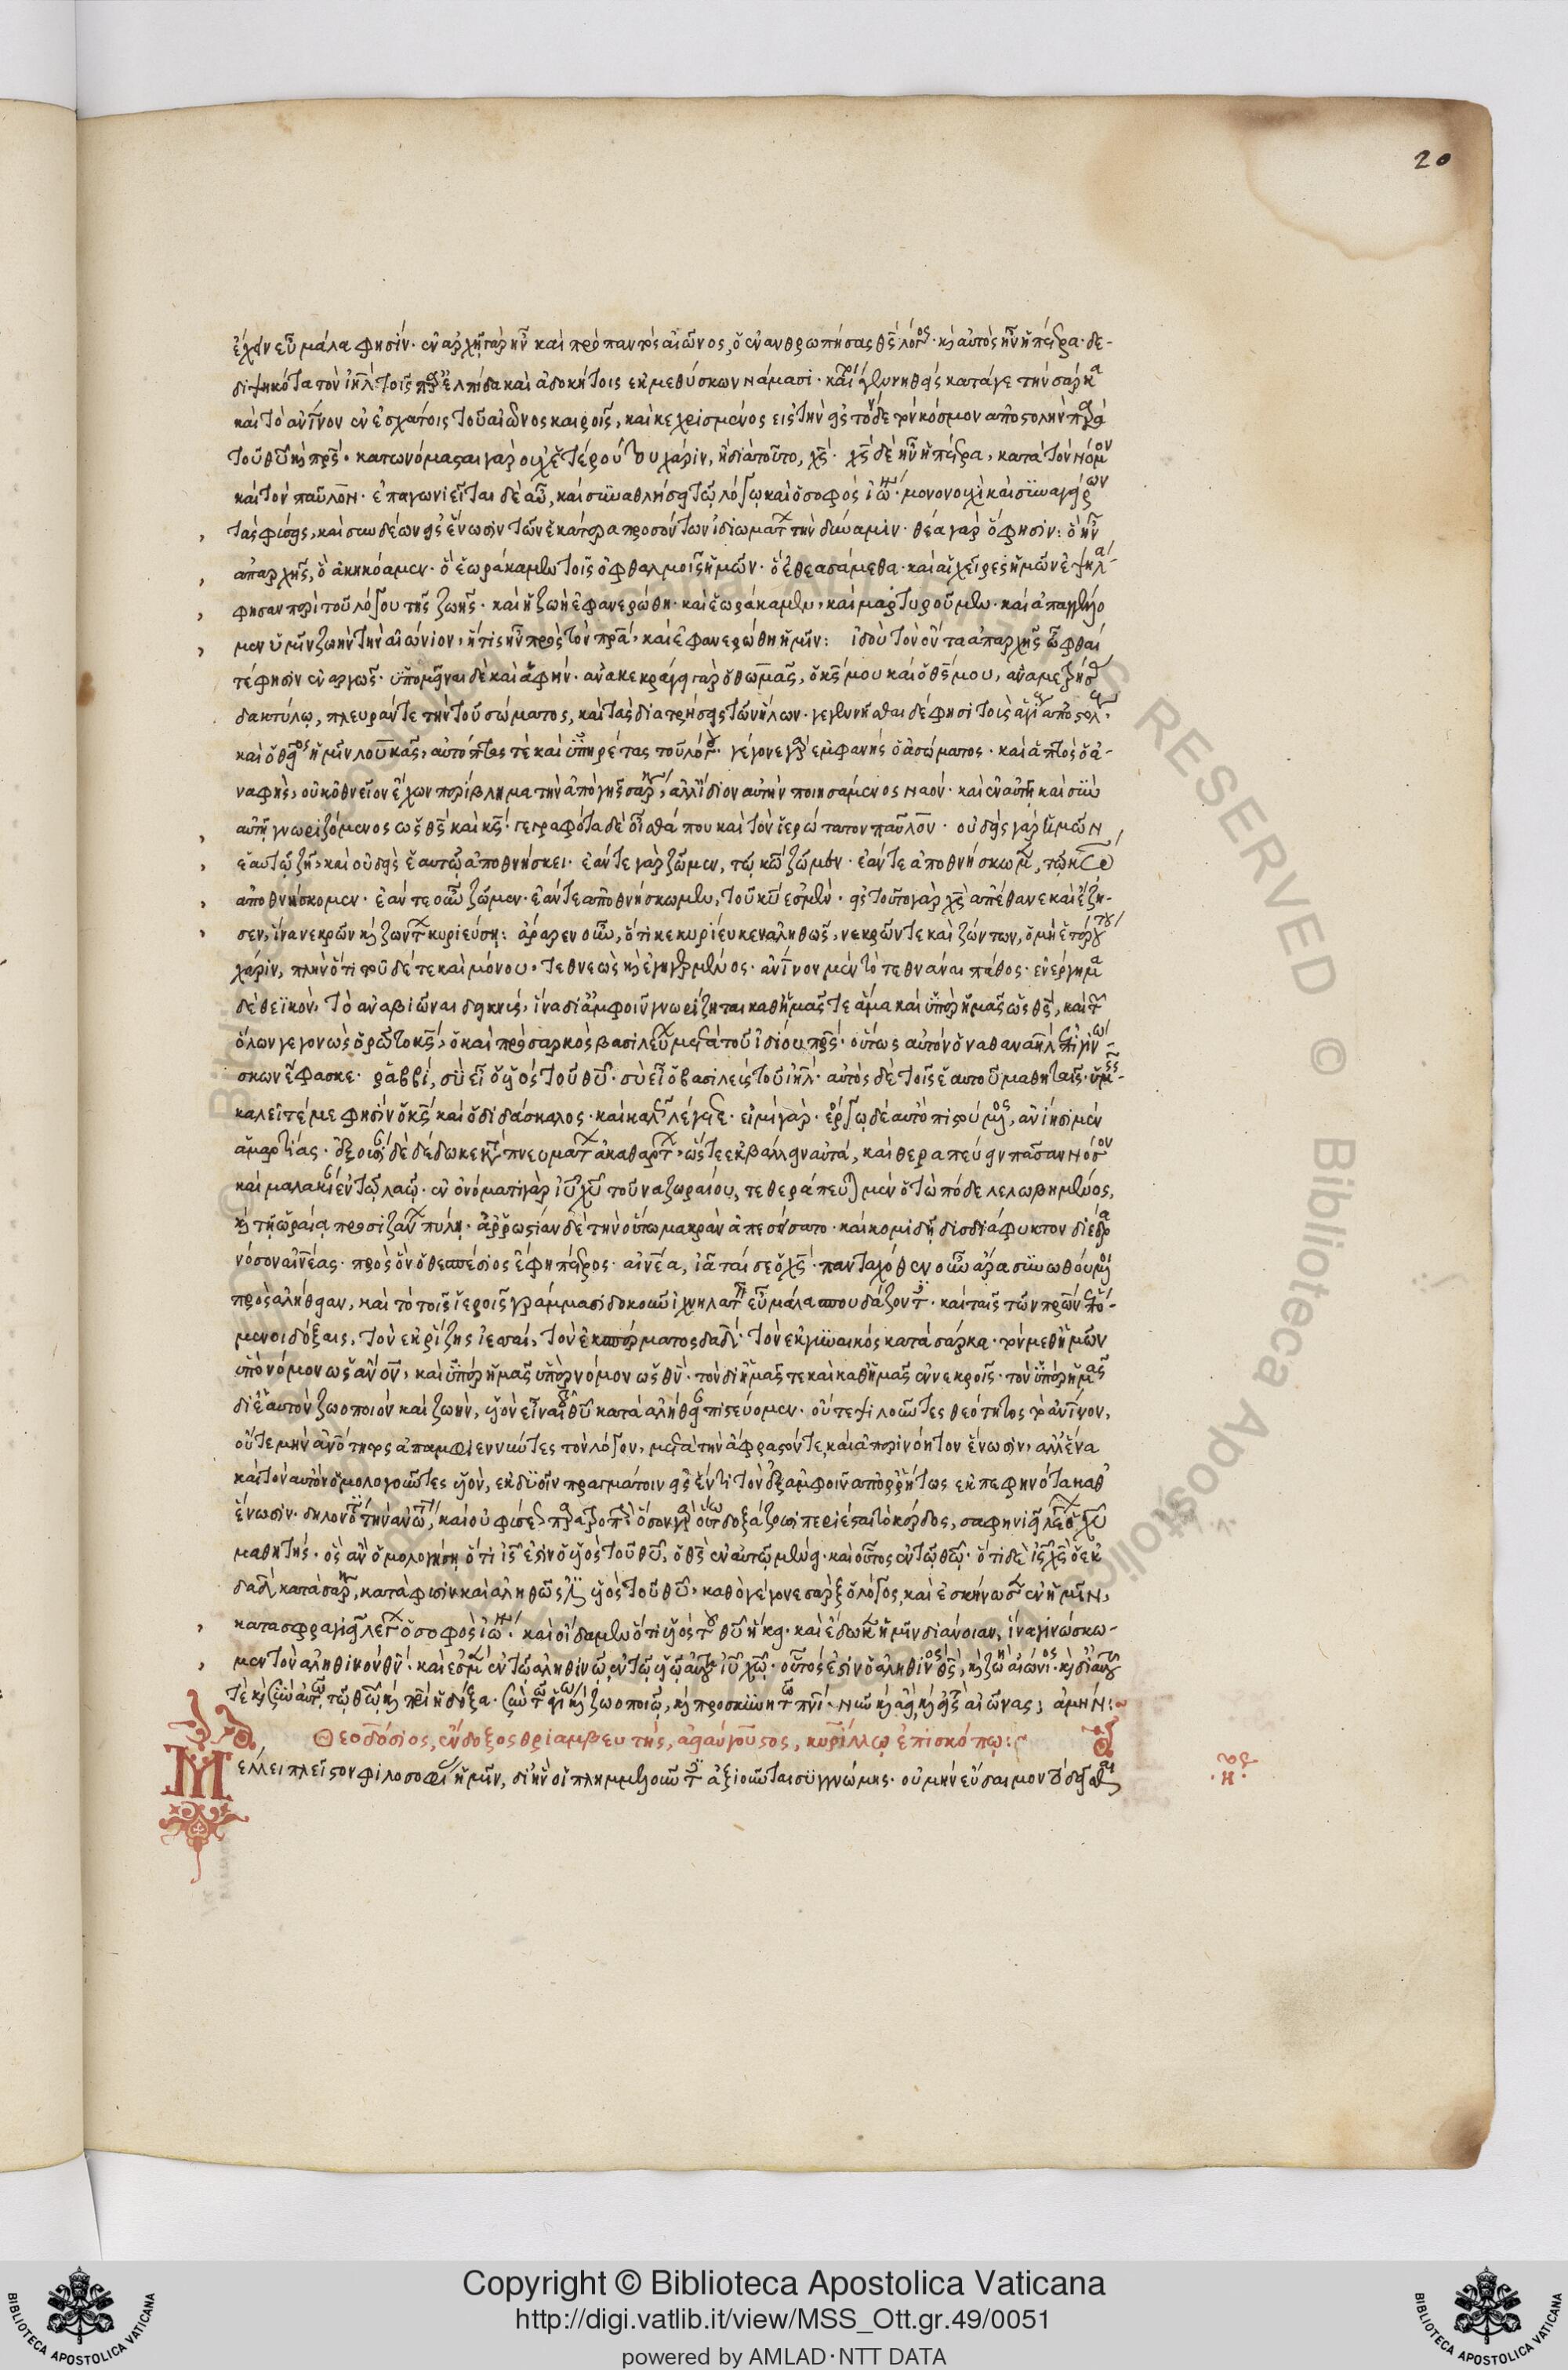 20
ἔχειν εὖ μάλα φησίν· ἐν ἀρχῇ γὰρ ἦν καὶ πρὸ παντὸς αἰῶνος, ὁ ἐνανθρωπήσας θς λόγος· καὶ αὐτὸς ἦν ἡ πέτρα· δε-
διψηκότα τὸν ιηλ τοῖς παρ' ἐλπίδα καὶ ἀδοκήτοις ἐκμεθύσκων νάμασι· καὶ γεννηθεὶς κατάγε τὴν σάρκα
καὶ τὸ ανινον ἐν ἐσχάτοις τοῦ αἰῶνος καιροῖς, καὶ κεχρισμένος εἰς τὴν εἰς τόνδε τὸν κόσμον ἀποστολὴν παρὰ
τοῦ θυ καὶ πρς· κατωνόμασται γὰρ οὐχ ἑτέρου του χάριν, ἢ διὰ τοῦτο, χς· χς δὲ ἦν ἡ πέτρα, κατὰ τὸν νόμον
καὶ τὸν παῦλον· ἐπαγωνιεῖται δὲ αὖ, καὶ συναθλήσει τῷ λόγῳ καὶ ὁ σοφὸς ἰω· μονονουχὶ καὶ συναγείρων
τὰς φύσεις, καὶ συνδέων εἰς ἕνωσιν τῶν ἑκατέρα προσόντων ἰδιωμάτων τὴν δύναμιν· θέα γὰρ ὅ φησιν: ὃ ἦν
ἀπαρχῆς, ὃ ἀκηκόαμεν· ὃ ἑωράκαμεν τοῖς ὀφθαλμοῖς ἡμῶν· ὃ ἐθεασάμεθα· καὶ αἱ χεῖρες ἡμῶν ἐψηλά-
φησαν περὶ τοῦ λόγου τῆς ζωῆς· καὶ ἡ ζωὴ ἐφανερώθη· καὶ ἑωράκαμεν, καὶ μαρτυροῦμεν· καὶ ἀπαγγέλλο
μεν ὑμῖν ζωὴν τὴν αἰώνιον, ἥτις ἦν πρὸς τὸν πρα, καὶ ἐφανερώθη ἡμῖν: ἰδοὺ τὸν ὄντα ἀπαρχῆς ὦφθαί
τέ φησιν ἐναργῶς· ὑπομεῖναι δὲ καὶ ἁφήν· ἀνακεκράγει γὰρ ὁ θωμᾶς, ὁ κς μου καὶ ὁ θς μου, ἀναμετρήσας
δακτύλῳ, πλευράν τε τὴν τοῦ σώματος, καὶ τὰς διατρήσεις τῶν ἥλων· γεγεννῆσθαι δέ φησι τοὺς ἁγίους ἀποστόλους·
καὶ ὁ θεῖος ἡμῖν λουκᾶς, αὐτόπτας τὲ καὶ ὑπηρέτας τοῦ λόγου· γέγονε γὰρ ἐμφανὴς ὁ ἀσώματος· καὶ ἁπτὸς ὁ ἀ-
ναφής, οὐκ ὀθνεῖον ἔχων περίβλημα τὴν ἀπὸ γῆς σάρκα, ἀλλ' ἴδιον αὐτὴν ποιησάμενος ναόν· καὶ ἐν αὐτῇ καὶ σὺν
αὐτῇ γνωριζόμενος ὡς θς καὶ κς· γεγραφότα δὲ οἶσθά που καὶ τὸν ἱερώτατον παῦλον· οὐδεὶς γὰρ ἡμῶν
ἑαυτῷ ζῇ, καὶ οὐδεὶς ἑαυτῷ ἀποθνήσκει· ἐάν τε γὰρ ζῶμεν, τῷ κω ζῶμεν· ἐάν τε ἀποθνήσκωμεν, τῷ κω
ἀποθνήσκομεν· ἐάν τε οὖν ζῶμεν· ἐάν τε ἀποθνήσκωμεν, τοῦ κυ ἐσμέν· εἰς τοῦτο γὰρ χς ἀπέθανε καὶ ἔζη-
σεν, ἵνα νεκρῶν καὶ ζώντων κυριεύσῃ: ἄραρεν οὖν, ὅτι κεκυρίευκεν ἀληθῶς, νεκρῶν τε καὶ ζώντων, ὁ μὴ ἑτέρου του
χάριν, πλὴν ὅτι τοῦδέ τε καὶ μόνου· τεθνεὼς καὶ ἐγηγερμένος· ανινον μὲν τὸ τεθνάναι πάθος· ἐνέργημα
δὲ θεϊκὸν, τὸ ἀναβιῶναι δεικνύς, ἵνα δι' ἀμφοῖν γνωρίζηται καθ' ἡμᾶς τε ἅμα καὶ ὑπὲρ ἡμᾶς ὡς θς, καὶ τῶν
ὅλων γεγονὼς ὁρῷτο κς, ὁ καὶ πρὸ σαρκὸς βασιλεύων μετὰ τοῦ ἰδίου πρς· οὕτως αὐτὸν ὁ ναθαναὴλ ἐπιγινώ-
σκων ἔφασκε· ῥαββί, σὺ εἶ ὁ υἱὸς τοῦ θυ· σὺ εἶ ὁ βασιλεὺς τοῦ ιηλ· αὐτὸς δὲ τοῖς ἑαυτοῦ μαθηταῖς· ὑμεῖς
καλεῖτέ με φησὶν ὁ κς καὶ ὁ διδάσκαλος· καὶ καλῶς λέγετε· εἰμὶ γάρ·
ἁμαρτίας·
καὶ μαλακίαν ἐν τῷ λαῷ· ἐν ὀνόματι γὰρ ιυ χυ τοῦ ναζωραίου, τεθεράπευται μὲν ὁ τὼ πόδε λελωβημένος,
καὶ τῇ ὡραίᾳ προσιζάνων πύλῃ· ἀρρωστίαν δὲ τὴν οὕτω μακρὰν ἀπεσείσατο· καὶ κομιδῇ δυσδιάφυκτον διέδρα
νόσον αἰνέας· πρὸς ὃν ὁ θεσπέσιος ἔφη πέτρος· αἰνέα, ἰᾶταί σε ὁ χς· πανταχόθεν οὖν ἄρα συνωθούμενοι
πρὸς ἀλήθειαν, καὶ τὸ τοῖς ἱεροῖς γράμμασι δοκοῦν ἰχνηλατεῖν εὖ μάλα σπουδάζοντες· καὶ ταῖς τῶν πρων ἑπό-
μενοι δόξαις, τὸν ἐκ ῥίζης ἰεσσαί, τὸν ἐκ σπέρματος δαδ· τὸν ἐκ γυναικὸς κατὰ σάρκα· τὸν μεθ' ἡμῶν
ὑπὸ νόμον ὡς ανον, καὶ ὑπὲρ ἡμᾶς ὑπὲρ νόμον ὡς θν· τὸν δι' ἡμᾶς τε καὶ καθ' ἡμᾶς ἐν νεκροῖς· τὸν ὑπὲρ ἡμᾶς
δι' ἑαυτὸν ζωοποιὸν καὶ ζωήν, υἱὸν εἶναι θυ κατὰ ἀλήθειαν πιστεύομεν· οὔτε ψιλοῦντες θεότητος τὸ ανινον,
οὔτε μὴν ἀνότητος ἀπαμφιεννύντες τὸν λόγον, μετὰ τὴν ἄφραστόν τε καὶ ἀπερινόητον ἕνωσιν, ἀλλ' ἕνα
καὶ τὸν αὐτὸν ὁμολογοῦντες υἱόν, ἐκ δυοῖν πραγμάτοιν εἰς ἕν τι τὸν ἐξ ἀμφοῖν ἀπορρήτως ἐκπεφηνότα καθ'
ἕνωσιν·
μαθητής· ὃς ἂν ὁμολογήσῃ ὅτι ις ἐστὶν ὁ υἱὸς τοῦ θυ, ὁ θς ἐν αὐτῷ μένει· καὶ οὗτος ἐν τῷ θω· ὅτι δὲ ις χς ὁ ἐκ
δαδ κατὰ σάρκα, κατὰ φύσιν καὶ ἀληθῶς ἐστιν υἱὸς τοῦ θυ, καθὸ γέγονε σὰρξ ὁ λόγος, καὶ ἐσκήνωσεν ἐν ἡμῖν,
κατασφραγιεῖ λέγων ὁ σοφὸς ἰω· καὶ οἴδαμεν ὅτι υἱὸς τοῦ θυ ἥκει· καὶ ἔδωκεν ἡμῖν διάνοιαν, ἵνα γινώσκω-
μεν τὸν ἀληθινὸν θν· καὶ ἐσμὲν ἐν τῷ ἀληθινῷ, ἐν τῷ υἱῷ αὐτοῦ ιυ χω· οὗτός ἐστιν ὁ ἀληθινὸς θς, καὶ ζωὴ αἰώνιος· καὶ δι' αὐτοῦ
τὲ καὶ σὺν αὐτῷ, τῷ θω καὶ πρι ἡ δόξα· σὺν τῷ ἁγίῳ καὶ ζωοποιῷ, καὶ προσκυνητῷ πνι· νῦν καὶ ἀεὶ, καὶ εἰς αἰῶνας, ἀμήν:
Θεοδόσιος, ἔνδοξος θριαμβευτής, ἀεὶ αὔγουστος, κυρίλλῳ ἐπισκόπῳ:
Μέλλει πλεῖστον φιλοσοφεῖν ἡμῖν, δι' ἣν οἱ πλημμελοῦντες ἀξιοῦνται συγγνώμης·
Copyright © Biblioteca Apostolica Vaticana
http://digi.vatlib.it/view/MSS_Ott.gr.49/0051
powered by AMLAD·NTT DATA
BIBLIOTECA APOSTOLICA VATICANA
BIBLIOTECA APOSTOLICA VATICANA